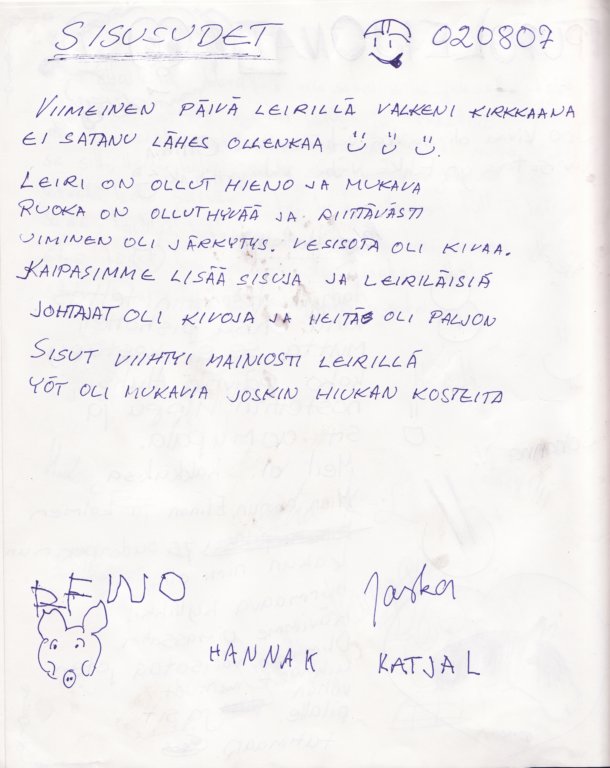 SISUSUDET 020807
VIIMEINEN PÄIVÄ LEIRILLÄ VALKENI KIRKKAANA
EI SATANU LÄHES OLLENKAA
LEIRI ON OLLUT HIENO JA MUKAVA
RUOKA ON OLLUT HYVÄÄ JA RIITTÄVÄSTI
UIMINEN OLI JÄRKYTYS. VESISOTA OLI KIVAA.
KAIPASIMME LISÄÄ SISUJA JA LEIRILÄISIÄ
JOHTAJAT OLI KIVOJA JA HEITÄ OLI PALJON
SISUT VIIHTYI MAINIOSTI LEIRILLÄ
YÖT OLI MUKAVIA JOSKIN HIUKAN KOSTEITA
Jaska
HANNA K KATJA L